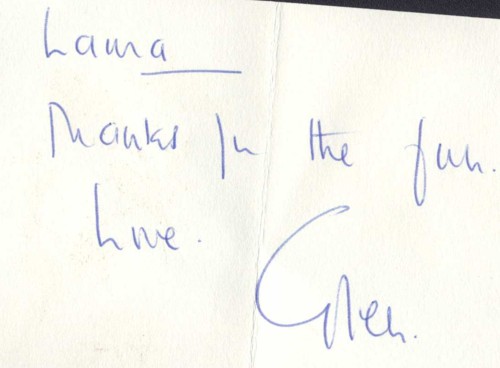 Laura
Thanks for the fun.
Love.